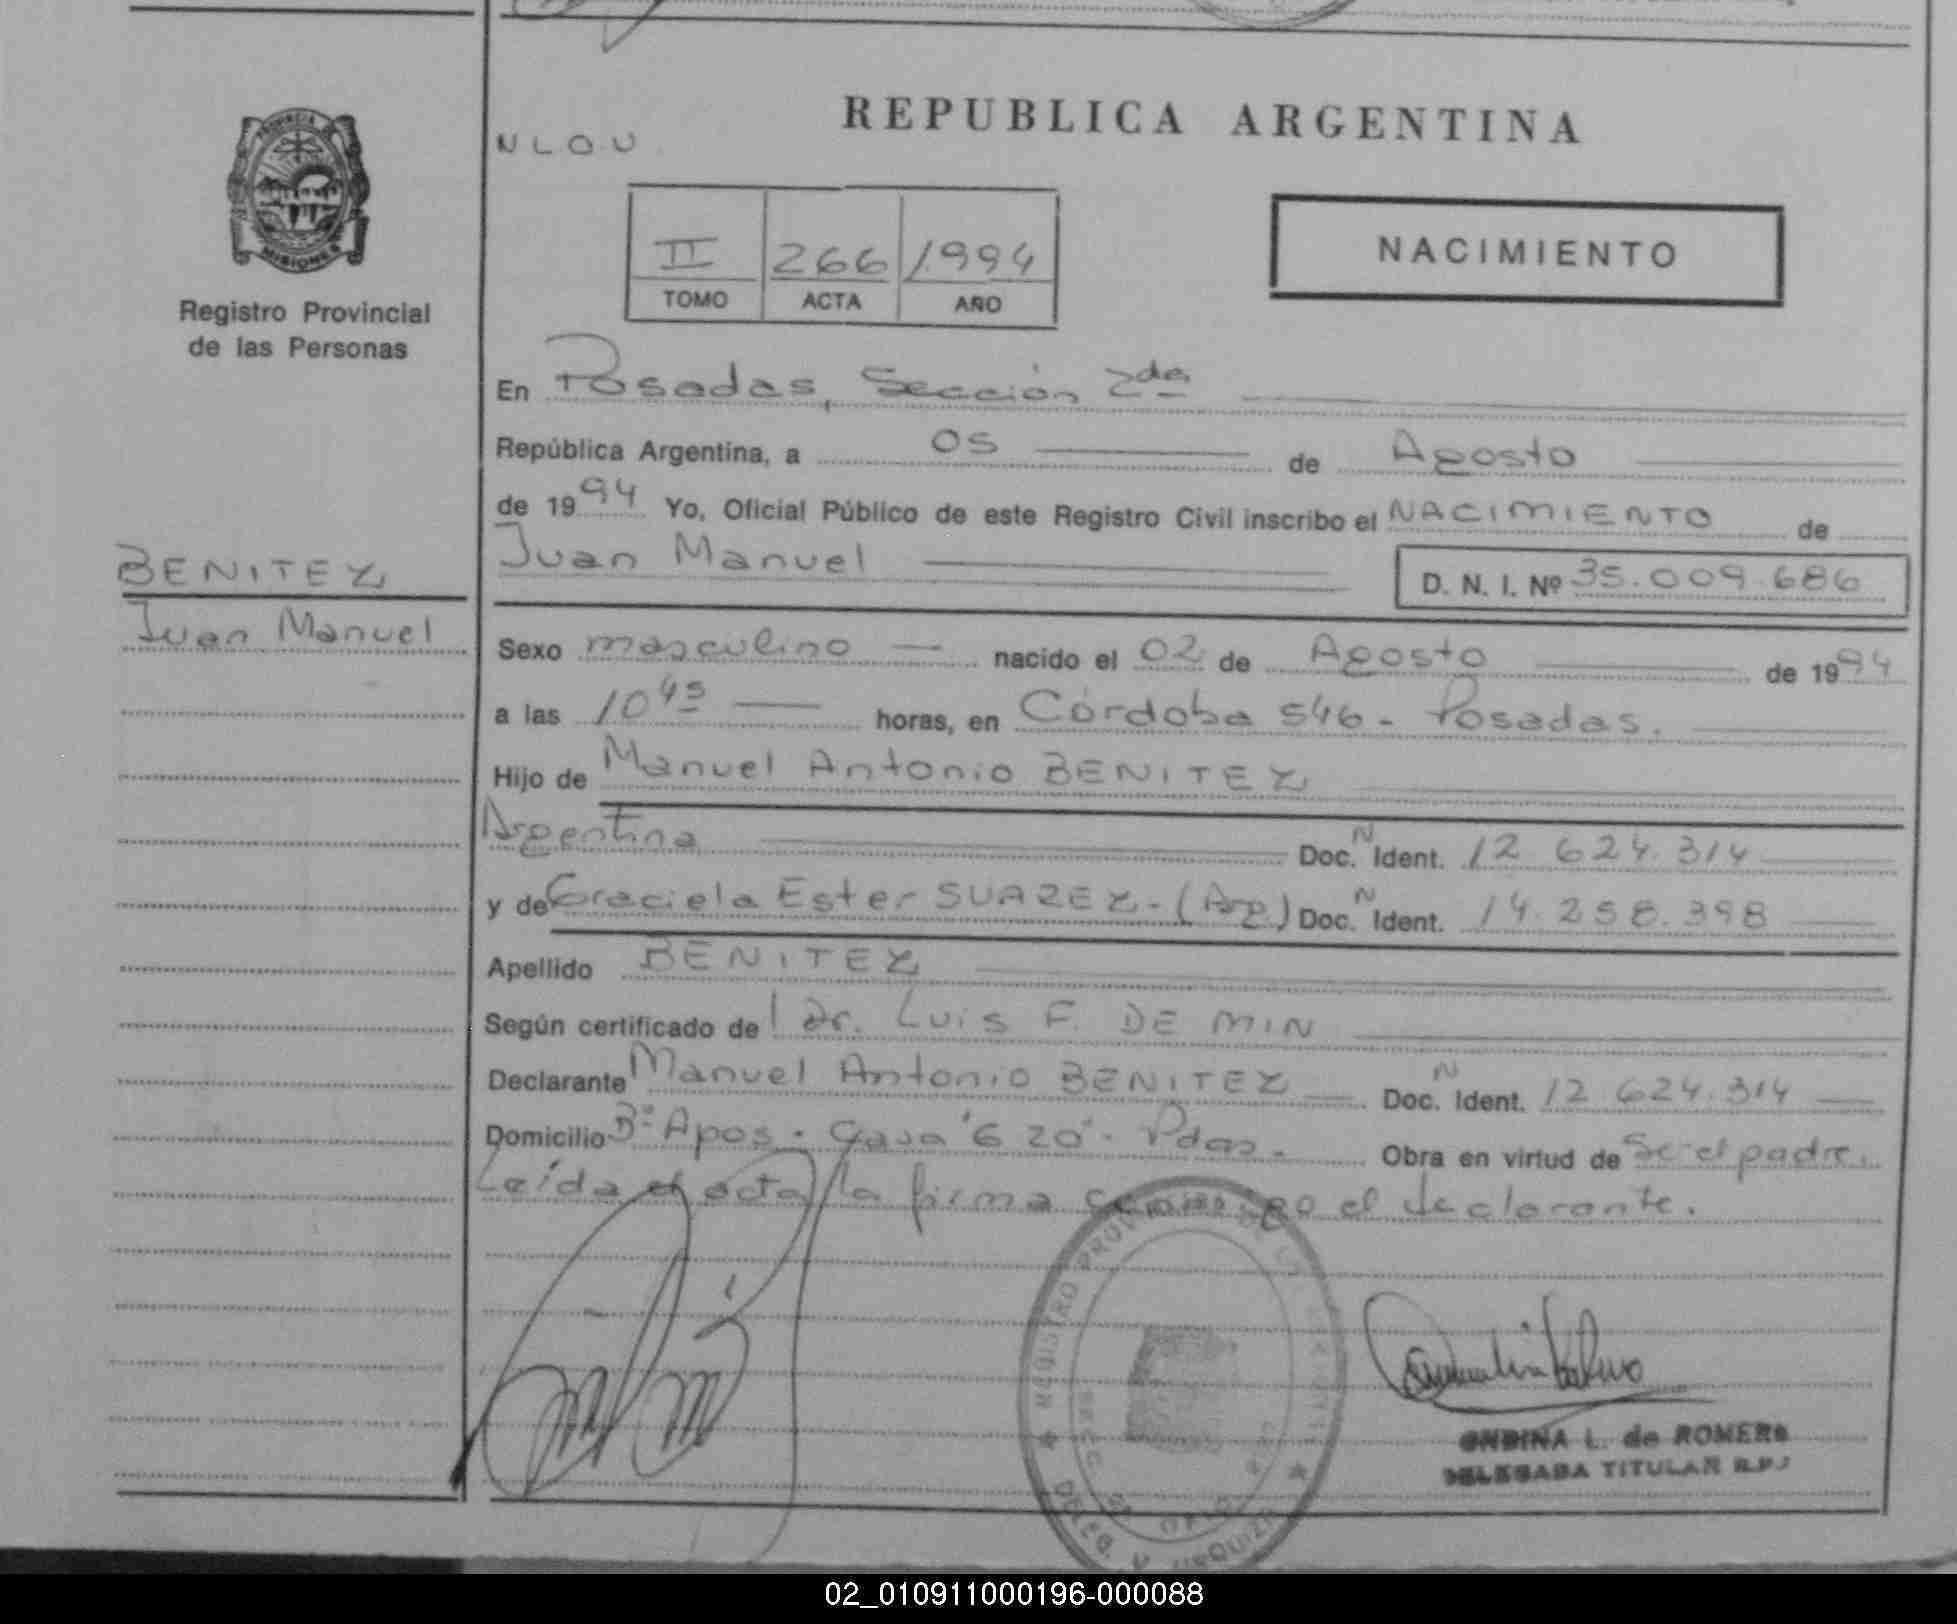 REPUBLICA ARGENTINA
NLOU
PROVINCIA DE
MISIONES
Registro Provincial
de las Personas
II 266 1994
TOMO ACTA AÑO
NACIMIENTO
En Posadas, Sección 2da
República Argentina, a 05 de Agosto
de 1994 Yo, Oficial Público de este Registro Civil inscribo el NACIMIENTO de
Juan Manuel D. N. I. Nº 35.009.686
BENITEZ
Juan Manuel
Sexo masculino nacido el 02 de Agosto de 1994
a las 10 45 horas, en Córdoba 546 - Posadas.
Hijo de Manuel Antonio BENITEZ
Argentina Doc. N Ident. 12.624.314
y de Graciela Ester SUAREZ - (Arg) Doc. N Ident. 14.258.398
Apellido BENITEZ
Según certificado de Dr. Luis F. DE MIN
Declarante Manuel Antonio BENITEZ Doc. N Ident. 12.624.314
Domicilio Bº Apos. Casa "6 20" - Pdas. Obra en virtud de Ser el padre.
Leída el acta la firma conmigo el declarante.
REGISTRO PROVINCIAL DE LAS PERSONAS
ONDINA L. de ROMERO
DELEGADA TITULAR R.P.
02_010911000196-000088